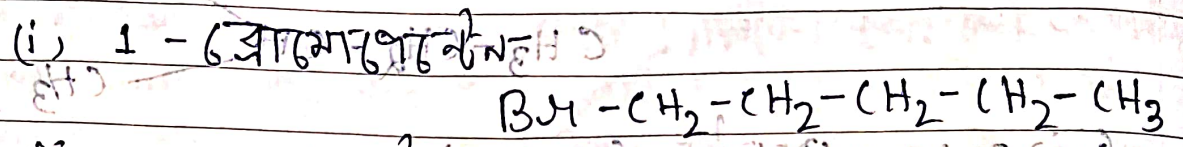 (i) 1 - ব্রোমোপেন্টেন
Br - CH₂ - CH₂ - CH₂ - CH₂ - CH₃